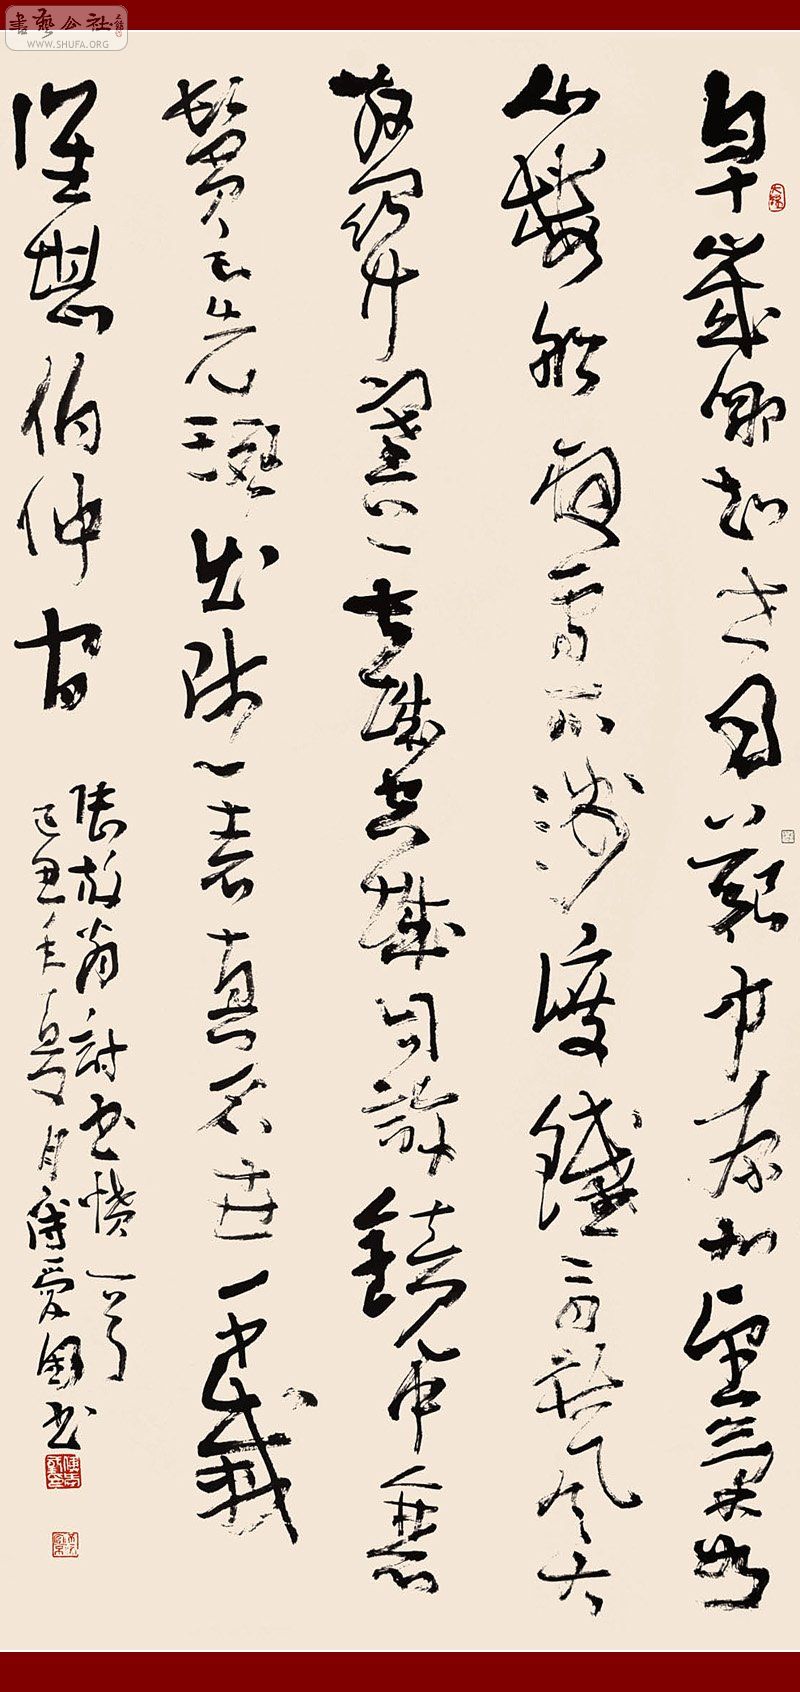 書藝公社
WWW.SHUFA.ORG
早歲那知世事艱中原北望氣如
山樓船夜雪瓜洲渡鐵馬秋風大
散關塞上長城空自許鏡中衰
鬢已先斑出師一表真名世千載
誰堪伯仲間
陸放翁詩書憤一首
己丑年夏月傅愛國書